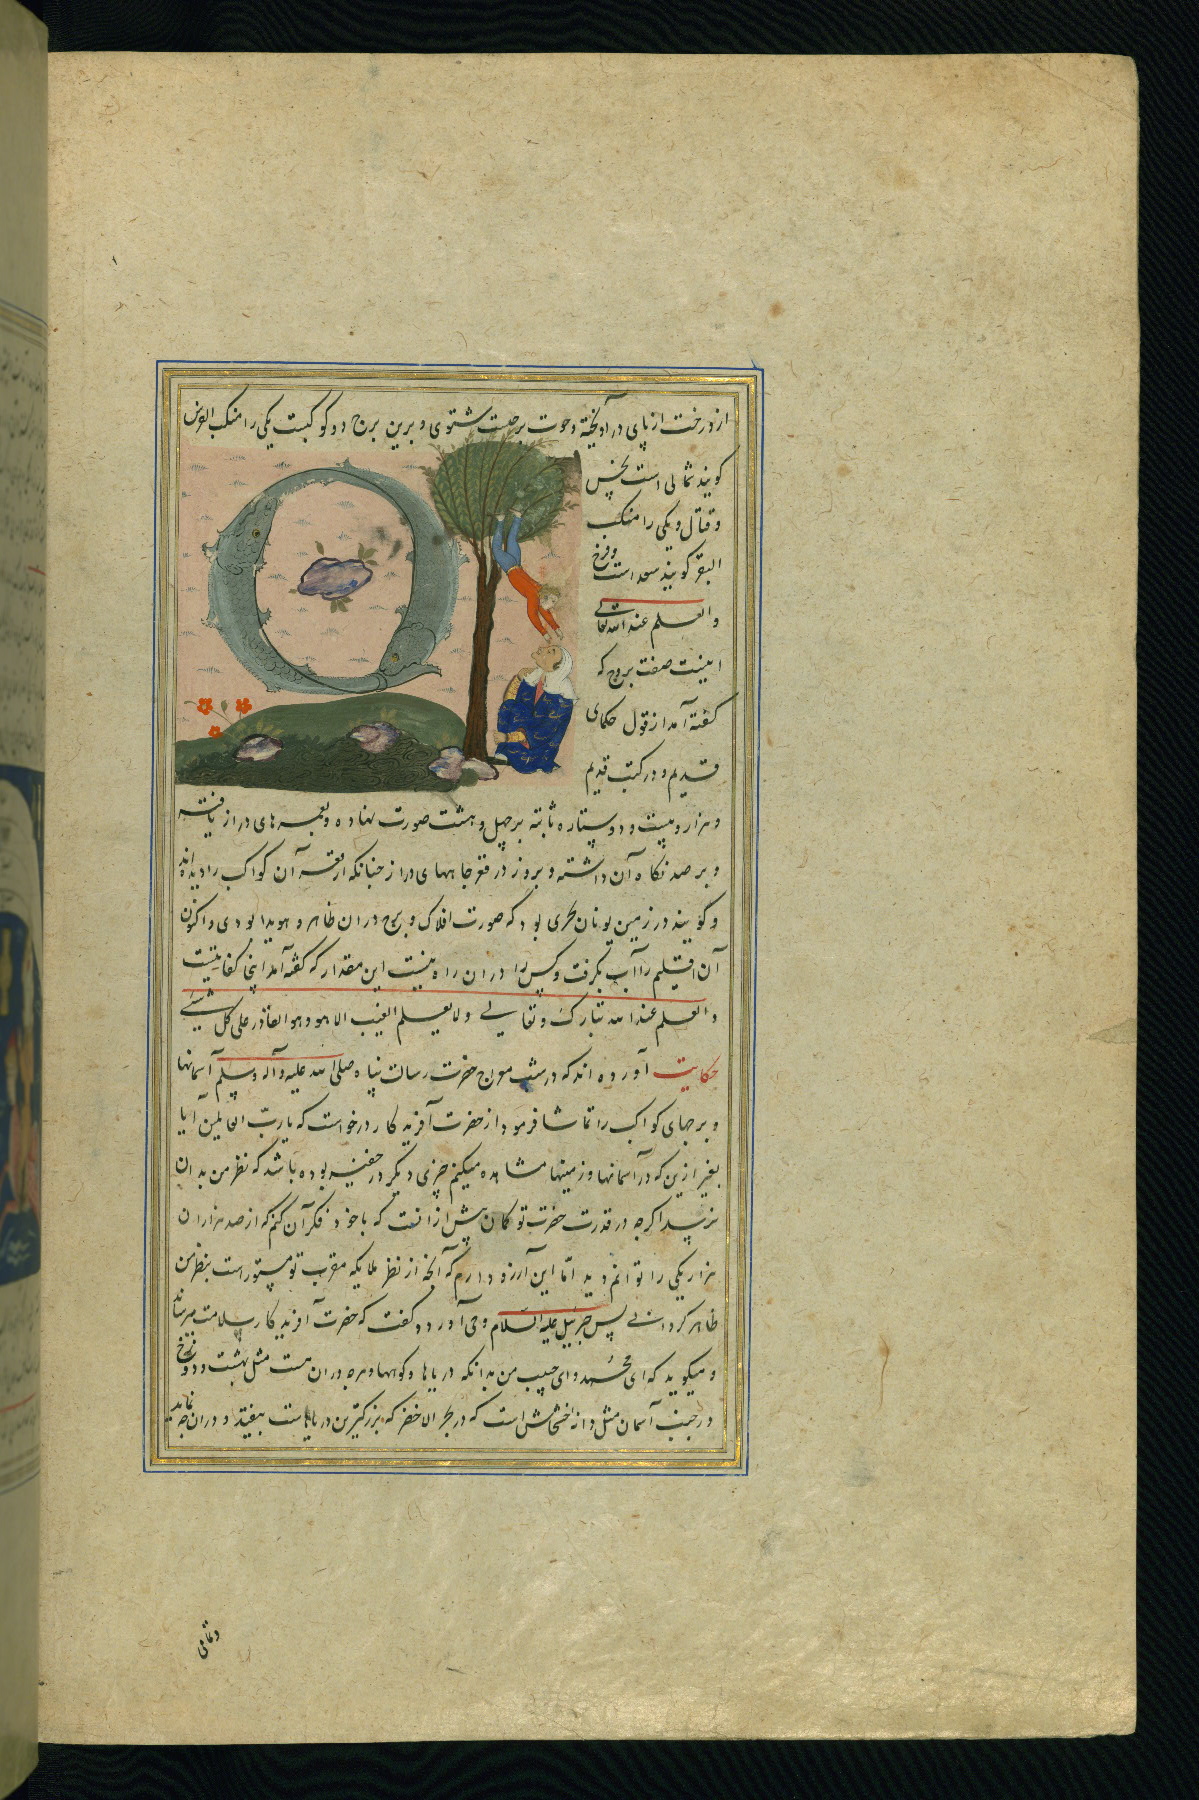 از درخت از پای در آویخته و حوت بر جیت شتوی و برین برج دو کوکبست یکی را منکب الفرس
کویند شمالی است نحس
و قتال و یکی را منکب
البقر کویند سعد است و فرخ
والعلم عند الله تعالی
اینست صفت بروج که
کفته آمد از قول حکمای
قدیم و در کتب قدیم
و هزار و بیست و دو ستاره ثابته بر چهل و هشت صورت نهاده و بعمرهای دراز یافته
و بر صد نکاه آن داشته و بروز در قعر چاههای دراز چنانکه از قعر آن کواکب را دیده‌اند
و کویند در زمین یونان بحری بود که صورت افلاک و بروج در ان ظاهر و هویدا بودی و اکنون
آن اقلیم را آب بکرفت و کس را در ان راه نیست این مقدار که کفته آمد اینجا کفایتست
والعلم عند الله تبارک و تعالی و لا یعلم الغیب الا هو و هو القادر علی کل شیئ
حکایت آورده اند که در شب معراج حضرت رسالت پناه صلی الله علیه و آله و سلم آسمانها
و برجهای کواکب را تماشا فرمود از حضرت آفریدکار درخواست که یا رب العالمین آیا
بغیر ازین که در آسمانها و زمینها مشاهده میکنم چیزی دیکر در خفیه بوده باشد که نظر من بدان
نرسید اکرچه در قدرت حضرت تو کمان بیش ازانست که با خود فکر آن کنم که از صد هزاران
هزار یکی را توانم دید اما این آرزو دارم که آنچه از نظر ملایکه مقرب تو مستور است بنظر من
ظاهر کردانی پس جبرئیل علیه السلام وحی آورد و کفت که حضرت آفریدکار سلامت میرساند
و میکوید که ای محمد و ای حبیب من بدانکه دریاها و کوهها و هرچه در ان هست مثل بهشت و دوزخ
در جنب آسمان مثل دانه خشخاش است که در بحر الاخضر که بزرکترین دریاهاست بیفتد و در ان چه نماید